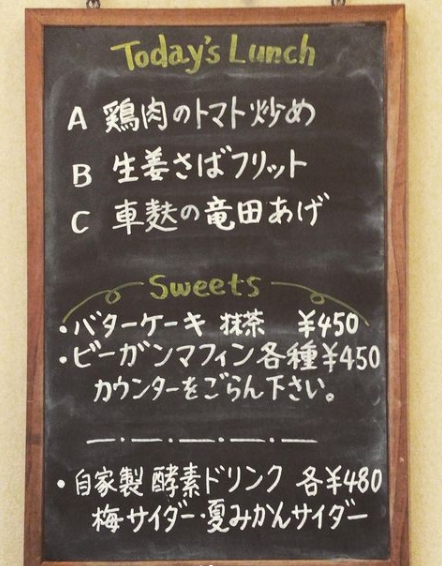 Today's Lunch
A 鶏肉のトマト炒め
B 生姜さばフリット
C 車麩の竜田あげ
Sweets
・バターケーキ 抹茶 ¥450
・ビーガンマフィン各種¥450
カウンターをごらん下さい。
・自家製 酵素ドリンク 各¥480
梅サイダー・夏みかんサイダー